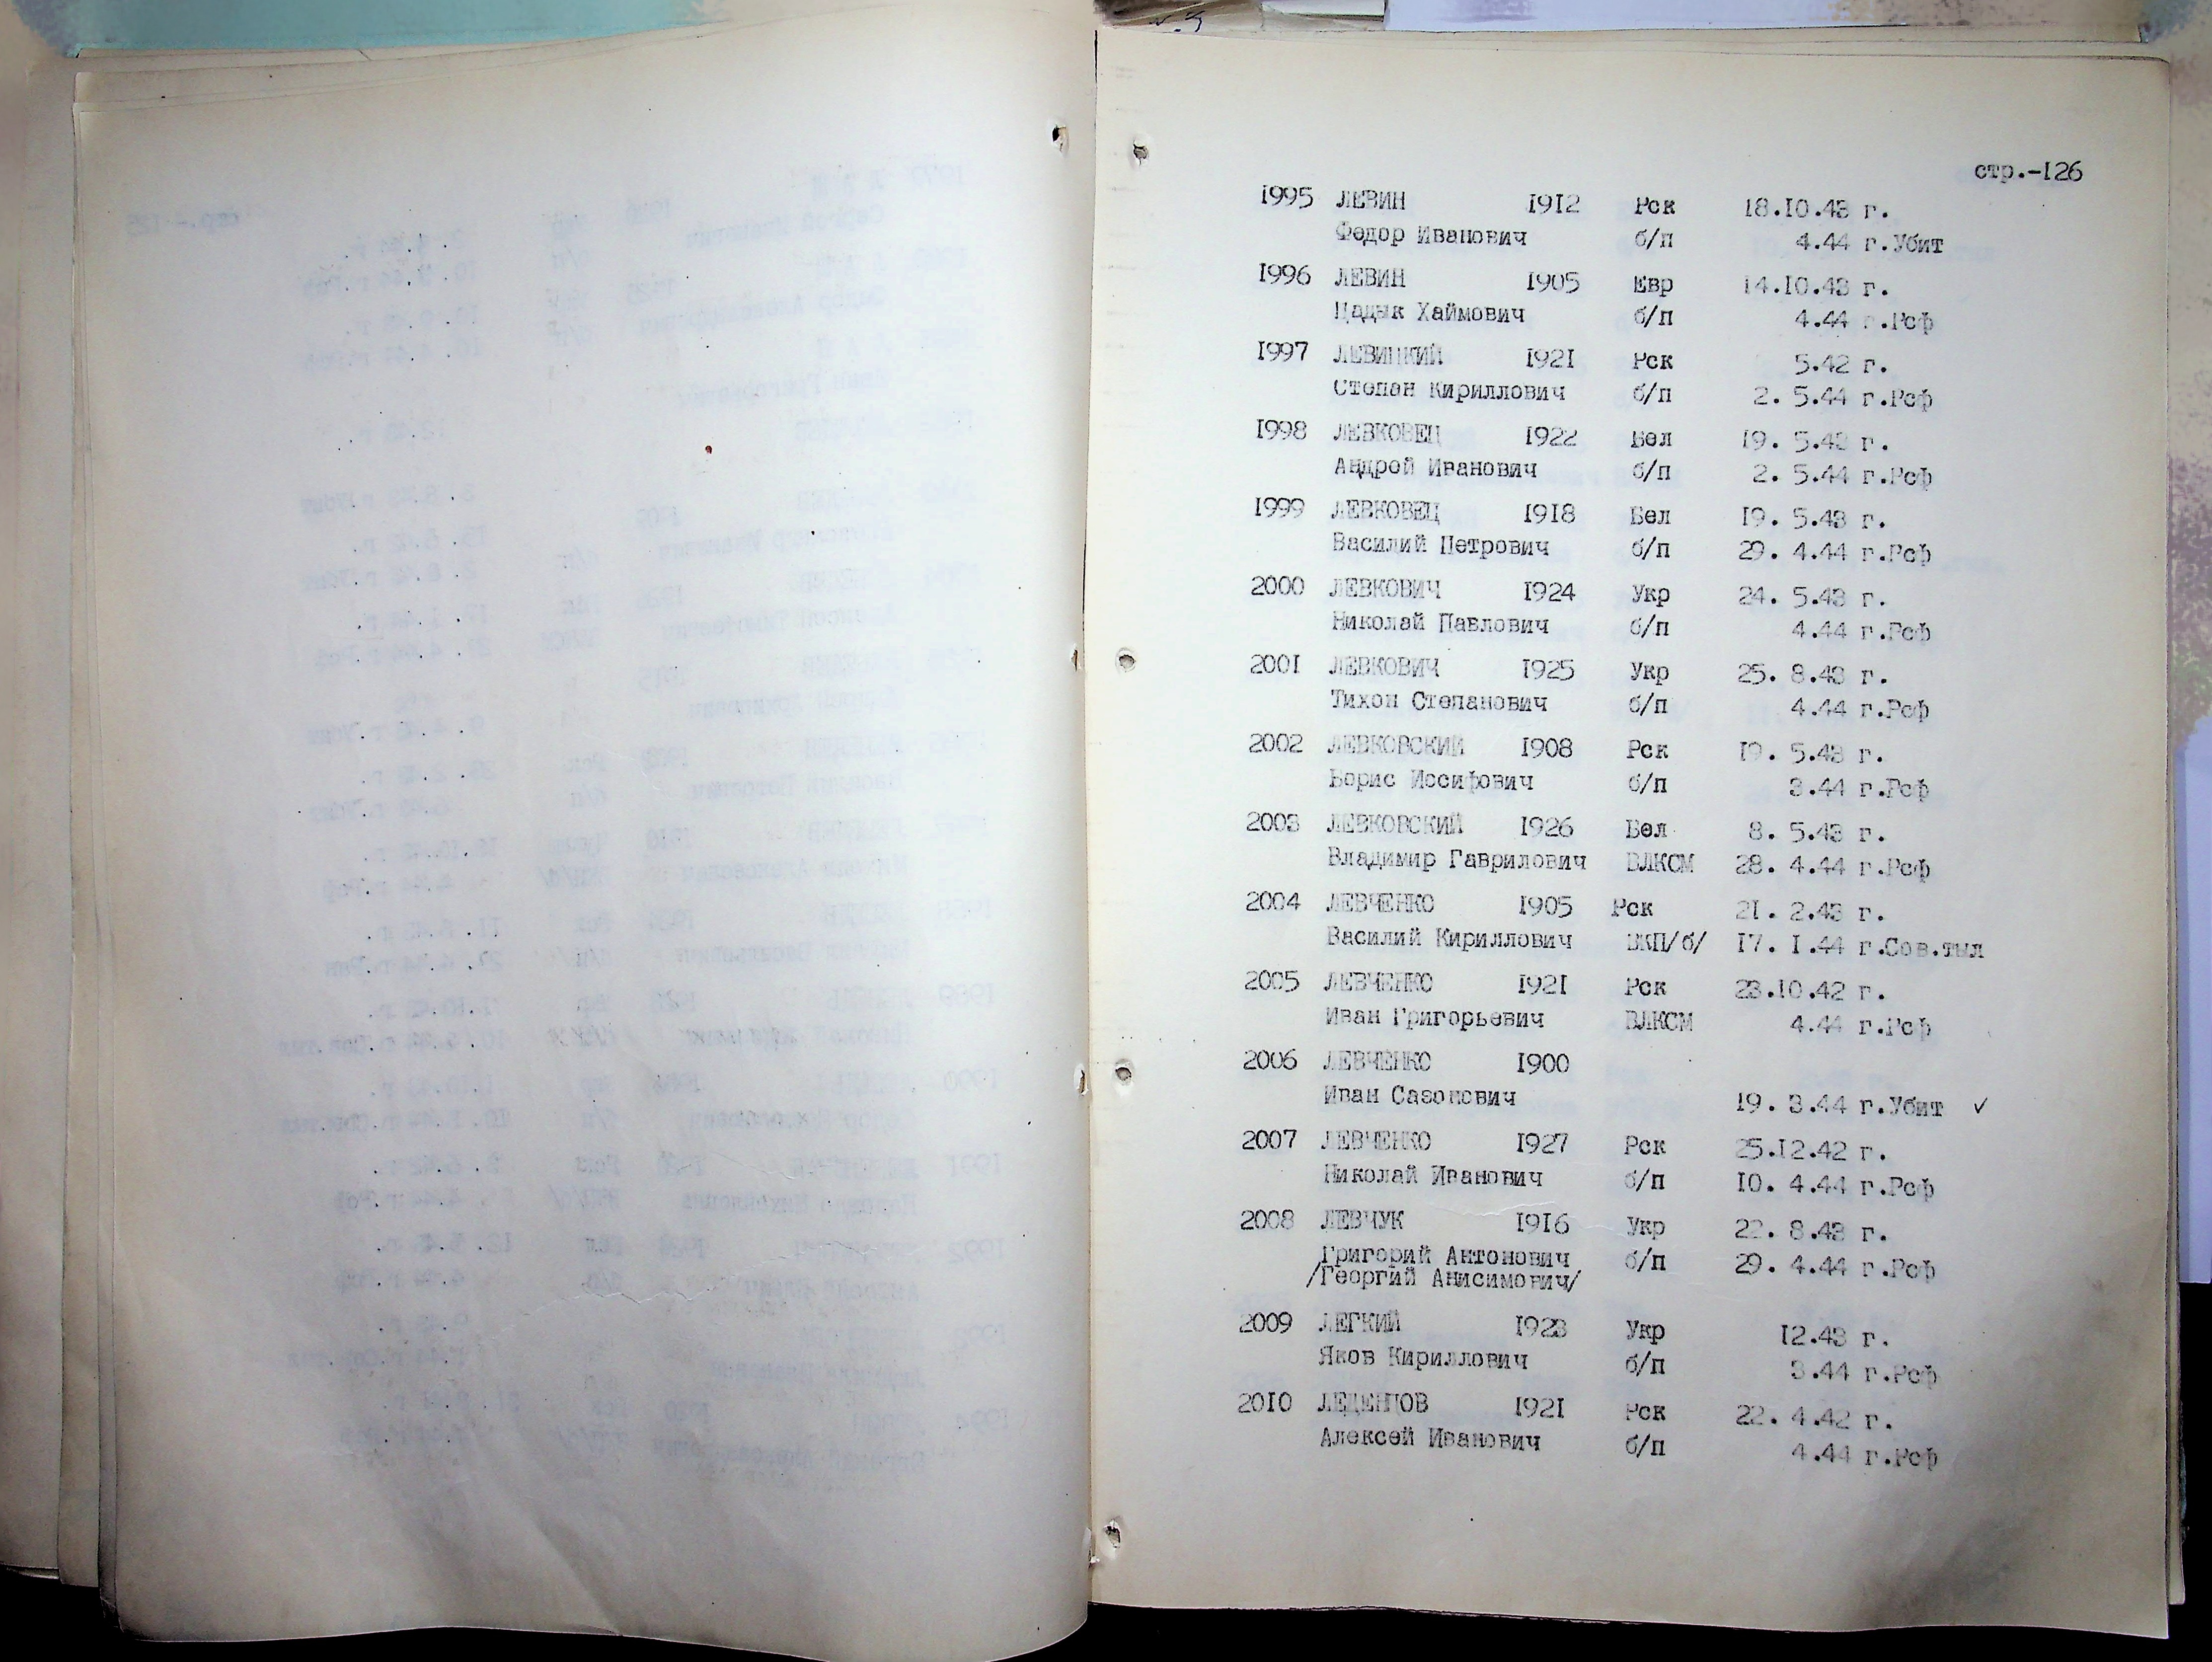 стр.-126
1995 ЛЕВИН 1912 Рск 18.10.43 г.
Федор Иванович б/п 4.44 г.Убит
1996 ЛЕВИН 1905 Евр 14.10.43 г.
Цадык Хаймович б/п 4.44 г.Рсф
1997 ЛЕВИЦКИЙ 1921 Рск 5.42 г.
Степан Кириллович б/п 2. 5.44 г.Рсф
1998 ЛЕВКОВЕЦ 1922 Бел 19. 5.43 г.
Андрей Иванович б/п 2. 5.44 г.Рсф
1999 ЛЕВКОВЕЦ 1918 Бел 19. 5.43 г.
Василий Петрович б/п 29. 4.44 г.Рсф
2000 ЛЕВКОВИЧ 1924 Укр 24. 5.43 г.
Николай Павлович б/п 4.44 г.Рсф
2001 ЛЕВКОВИЧ 1925 Укр 25. 8.43 г.
Тихон Степанович б/п 4.44 г.Рсф
2002 ЛЕВКОВСКИЙ 1908 Рск 19. 5.43 г.
Борис Иосифович б/п 3.44 г.Рсф
2003 ЛЕВКОВСКИЙ 1926 Бел 8. 5.43 г.
Владимир Гаврилович ВЛКСМ 28. 4.44 г.Рсф
2004 ЛЕВЧЕНКО 1905 Рск 21. 2.43 г.
Василий Кириллович ВКП/б/ 17. 1.44 г.Сов.тыл
2005 ЛЕВЧЕНКО 1921 Рск 23.10.42 г.
Иван Григорьевич ВЛКСМ 4.44 г.Рсф
2006 ЛЕВЧЕНКО 1900
Иван Сазонович 19. 3.44 г.Убит ✓
2007 ЛЕВЧЕНКО 1927 Рск 25.12.42 г.
Николай Иванович б/п 10. 4.44 г.Рсф
2008 ЛЕВЧУК 1916 Укр 22. 8.43 г.
Григорий Антонович б/п 29. 4.44 г.Рсф
/Георгий Анисимович/
2009 ЛЕГКИЙ 1923 Укр 12.43 г.
Яков Кириллович б/п 3.44 г.Рсф
2010 ЛЕДЕНЦОВ 1921 Рск 22. 4.42 г.
Алексей Иванович б/п 4.44 г.Рсф